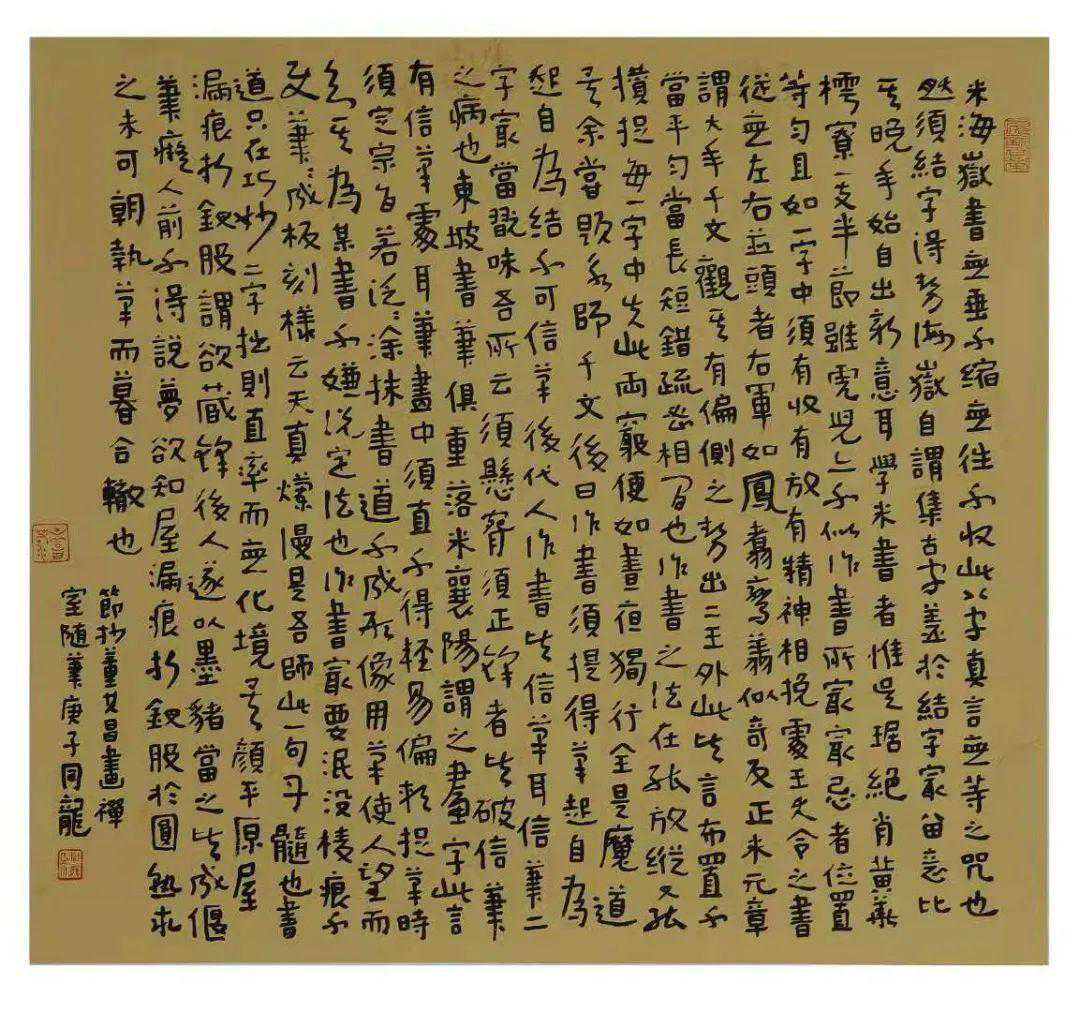 米海嶽書無垂不縮無往不收此八字真言無等之咒也
然須結字得勢海嶽自謂集古字蓋於結字最留意比
其晚年始自出新意耳學米書者惟吳琚絕肖黃華
樗寮一支半節雖虎兒亦不似作書所最最忌者位置
等勻且如一字中須有收有放有精神相挽處王大令之書
從無左右並頭者右軍如鳳翥鸞翥似奇反正米元章
謂大年千文觀其有偏側之勢出二王外此皆言布置不
當平勻當長短錯疏密相間也作書之法在能放縱又能
攢捉每一字中失此兩竅便如晝夜獨行全是魔道
矣余嘗題永師千文後曰作書須提得筆起自為
起自為結不可信筆後代人作書皆信筆耳信筆二
字最當翫味吾所云須懸臂須正鋒者皆破信筆
之病也東坡書筆俱重落米襄陽謂之畫字此言
有信筆處耳筆畫中須直不得輕易偏軟捉筆時
須定宗旨若泛泛涂抹書道不成形像用筆使人望而
知其為某書不嫌說定法也作書最要泯沒棱痕不
使筆筆成板刻樣云天真爛漫是吾師此一句丹髓也書
道只在巧妙二字拙則直率而無化境矣顏平原屋
漏痕折釵股謂欲藏鋒後人遂以墨豬當之皆成偃
筆癡人前不得說夢欲知屋漏痕折釵股於圓熟求
之未可朝執筆而暮合轍也
節抄董其昌畫禪
室隨筆庚子同龍